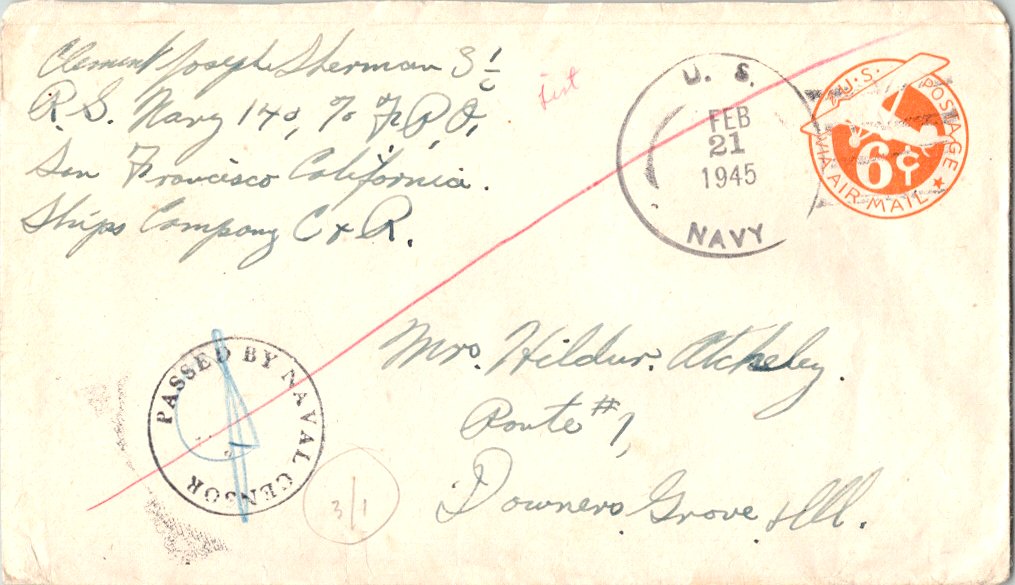 Clement Joseph Sherman S 1/c
R.S. Navy 140, % F.P.O,
San Francisco California.
Ships Company C & R.
U. S.
FEB
21
1945
NAVY
U.S. POSTAGE
6¢
VIA AIR MAIL
Mrs. Hildur. Atcheley.
Route #1,
Downers Grove, Ill.
PASSED BY NAVAL CENSOR
3/1